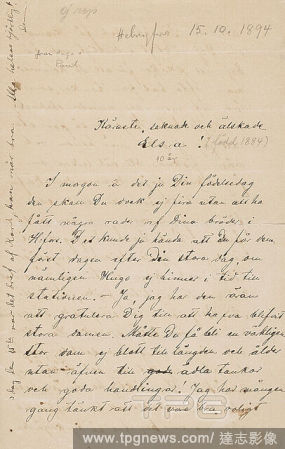 ej resp
Helsingfors 15.10.1894
Käraste, saknade och älskade
Elsa! (född 1884)
10 år
I morgon är det ju Din födelsedag
den skall Du dock ej fira utan att ha
fått några rader af Dina bröder i
H:fors. Det kunde ju hända att Du får dem
först dagen efter Din stora dag, om
nämligen Hugo ej hinner i tid till
stationen. — Ja, jag har den äran
att gratulera Dig till att hafva blifvit
stora damen. Måtte Du få bli en väldigen
stor dam ej blott till längden och ålder
utan äfven till ädla tankar
och goda handlingar. Jag har mången
gång tänkt att det var bra
www.tpgnews.com / 達志影像